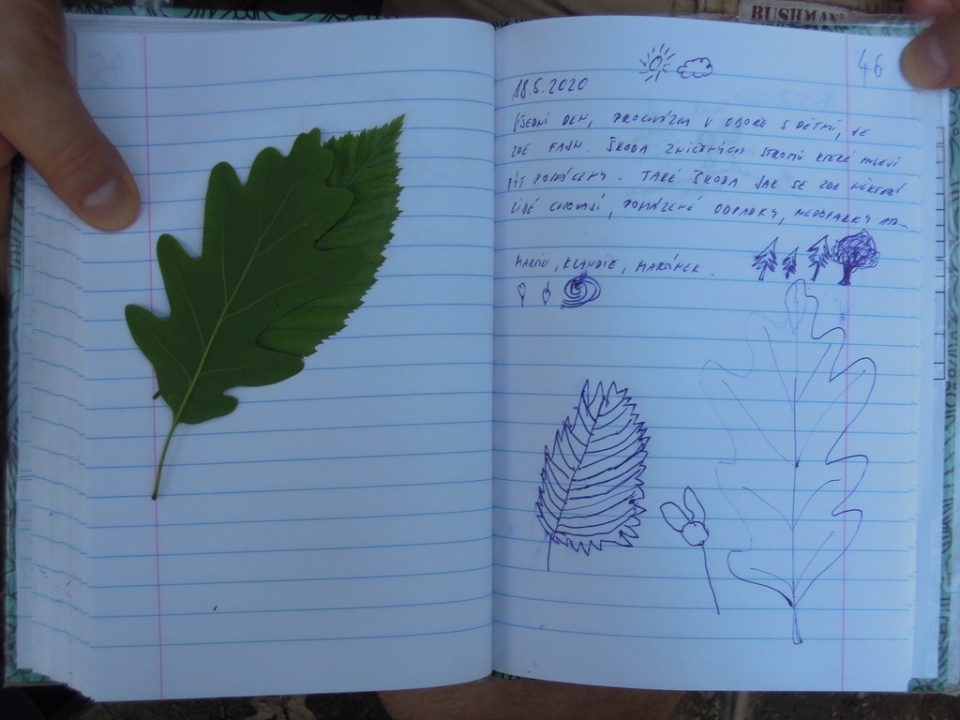 BUSHMAN
46
18.5.2020
VŠEDNÍ DEN, PROCHÁZKA V OBOŘE S DĚTMI, JE
ZDE FAJN. ŠKODA ZNIČENÝCH STROMŮ KTERÉ MUSELI
BÝT POKÁCENY. TAKÉ ŠKODA JAK SE ZDE NĚKTEŘÍ
LIDÉ CHOVAJÍ, POHÁZENÉ ODPADKY, NEDOPALKY ATD...
KLAUDIE, MARTÍNEK.